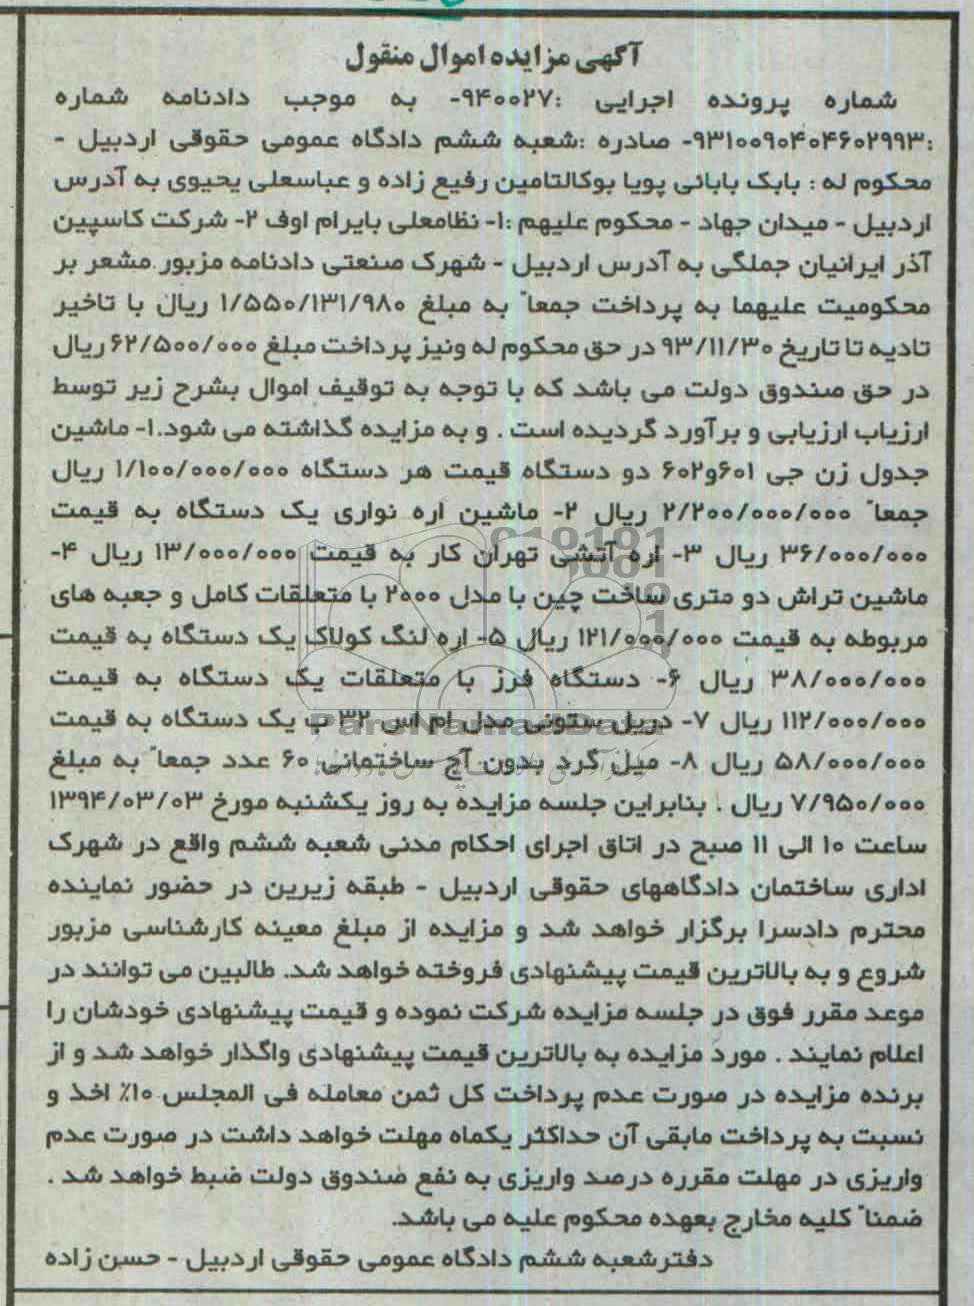 آگهی مزایده اموال منقول
شماره پرونده اجرایی :۹۴۰۰۲۷- به موجب دادنامه شماره
:۹۳۱۰۰۹۰۴۰۴۶۰۲۹۹۳- صادره :شعبه ششم دادگاه عمومی حقوقی اردبیل -
محکوم له : بابک بابائی پویا بوکالتامین رفیع زاده و عباسعلی یحیوی به آدرس
اردبیل - میدان جهاد - محکوم علیهم :۱- نظامعلی بایرام اوف ۲- شرکت کاسپین
آذر ایرانیان جملگی به آدرس اردبیل - شهرک صنعتی دادنامه مزبور مشعر بر
محکومیت علیهما به پرداخت جمعاً به مبلغ ۱/۵۵۰/۱۳۱/۹۸۰ ریال با تاخیر
تادیه تا تاریخ ۹۳/۱۱/۳۰ در حق محکوم له ونیز پرداخت مبلغ ۶۲/۵۰۰/۰۰۰ ریال
در حق صندوق دولت می باشد که با توجه به توقیف اموال بشرح زیر توسط
ارزیاب ارزیابی و برآورد گردیده است . و به مزایده گذاشته می شود.۱- ماشین
جدول زن جی ۶۰۱و۶۰۲ دو دستگاه قیمت هر دستگاه ۱/۱۰۰/۰۰۰/۰۰۰ ریال
جمعاً ۲/۲۰۰/۰۰۰/۰۰۰ ریال ۲- ماشین اره نواری یک دستگاه به قیمت
۳۶/۰۰۰/۰۰۰ ریال ۳- اره آتشی تهران کار به قیمت ۱۳/۰۰۰/۰۰۰ ریال ۴-
ماشین تراش دو متری ساخت چین با مدل ۲۰۰۰ با متعلقات کامل و جعبه های
مربوطه به قیمت ۱۲۱/۰۰۰/۰۰۰ ریال ۵- اره لنگ کولاک یک دستگاه به قیمت
۳۸/۰۰۰/۰۰۰ ریال ۶- دستگاه فرز با متعلقات یک دستگاه به قیمت
۱۱۲/۰۰۰/۰۰۰ ریال ۷- دریل ستونی مدل ام اس ۳۲ پ یک دستگاه به قیمت
۵۸/۰۰۰/۰۰۰ ریال ۸- میل گرد بدون آج ساختمانی ۶۰ عدد جمعاً به مبلغ
۷/۹۵۰/۰۰۰ ریال . بنابراین جلسه مزایده به روز یکشنبه مورخ ۱۳۹۴/۰۳/۰۳
ساعت ۱۰ الی ۱۱ صبح در اتاق اجرای احکام مدنی شعبه ششم واقع در شهرک
اداری ساختمان دادگاههای حقوقی اردبیل - طبقه زیرین در حضور نماینده
محترم دادسرا برگزار خواهد شد و مزایده از مبلغ معینه کارشناسی مزبور
شروع و به بالاترین قیمت پیشنهادی فروخته خواهد شد. طالبین می توانند در
موعد مقرر فوق در جلسه مزایده شرکت نموده و قیمت پیشنهادی خودشان را
اعلام نمایند . مورد مزایده به بالاترین قیمت پیشنهادی واگذار خواهد شد و از
برنده مزایده در صورت عدم پرداخت کل ثمن معامله فی المجلس ۱۰٪ اخذ و
نسبت به پرداخت مابقی آن حداکثر یکماه مهلت خواهد داشت در صورت عدم
واریزی در مهلت مقرره درصد واریزی به نفع صندوق دولت ضبط خواهد شد .
ضمناً کلیه مخارج بعهده محکوم علیه می باشد.
دفترشعبه ششم دادگاه عمومی حقوقی اردبیل - حسن زاده
ParsNamadData